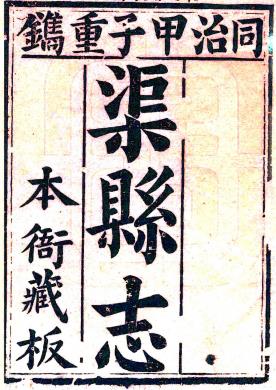 同治甲子重鐫
渠縣志
本衙藏板